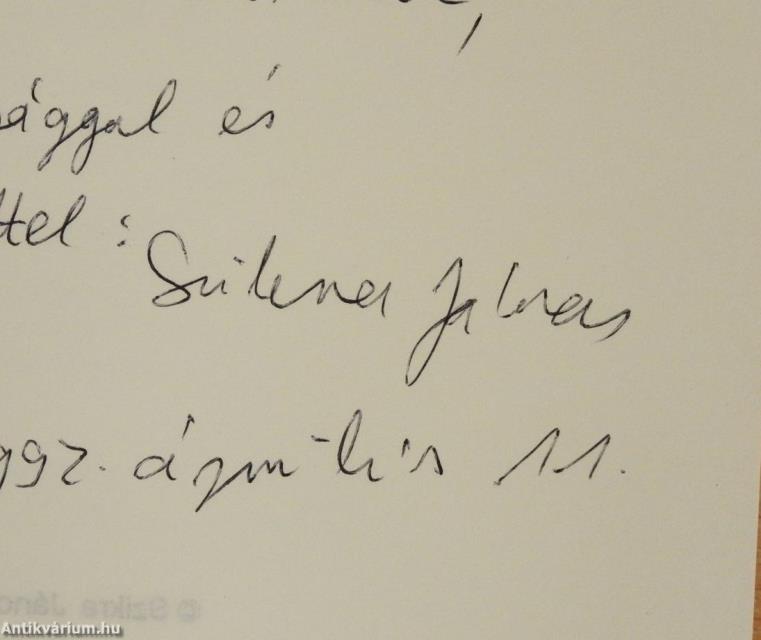 ággal és
ttel :
Szikra János
992. április 11.
© Szikra János
Antikvárium.hu